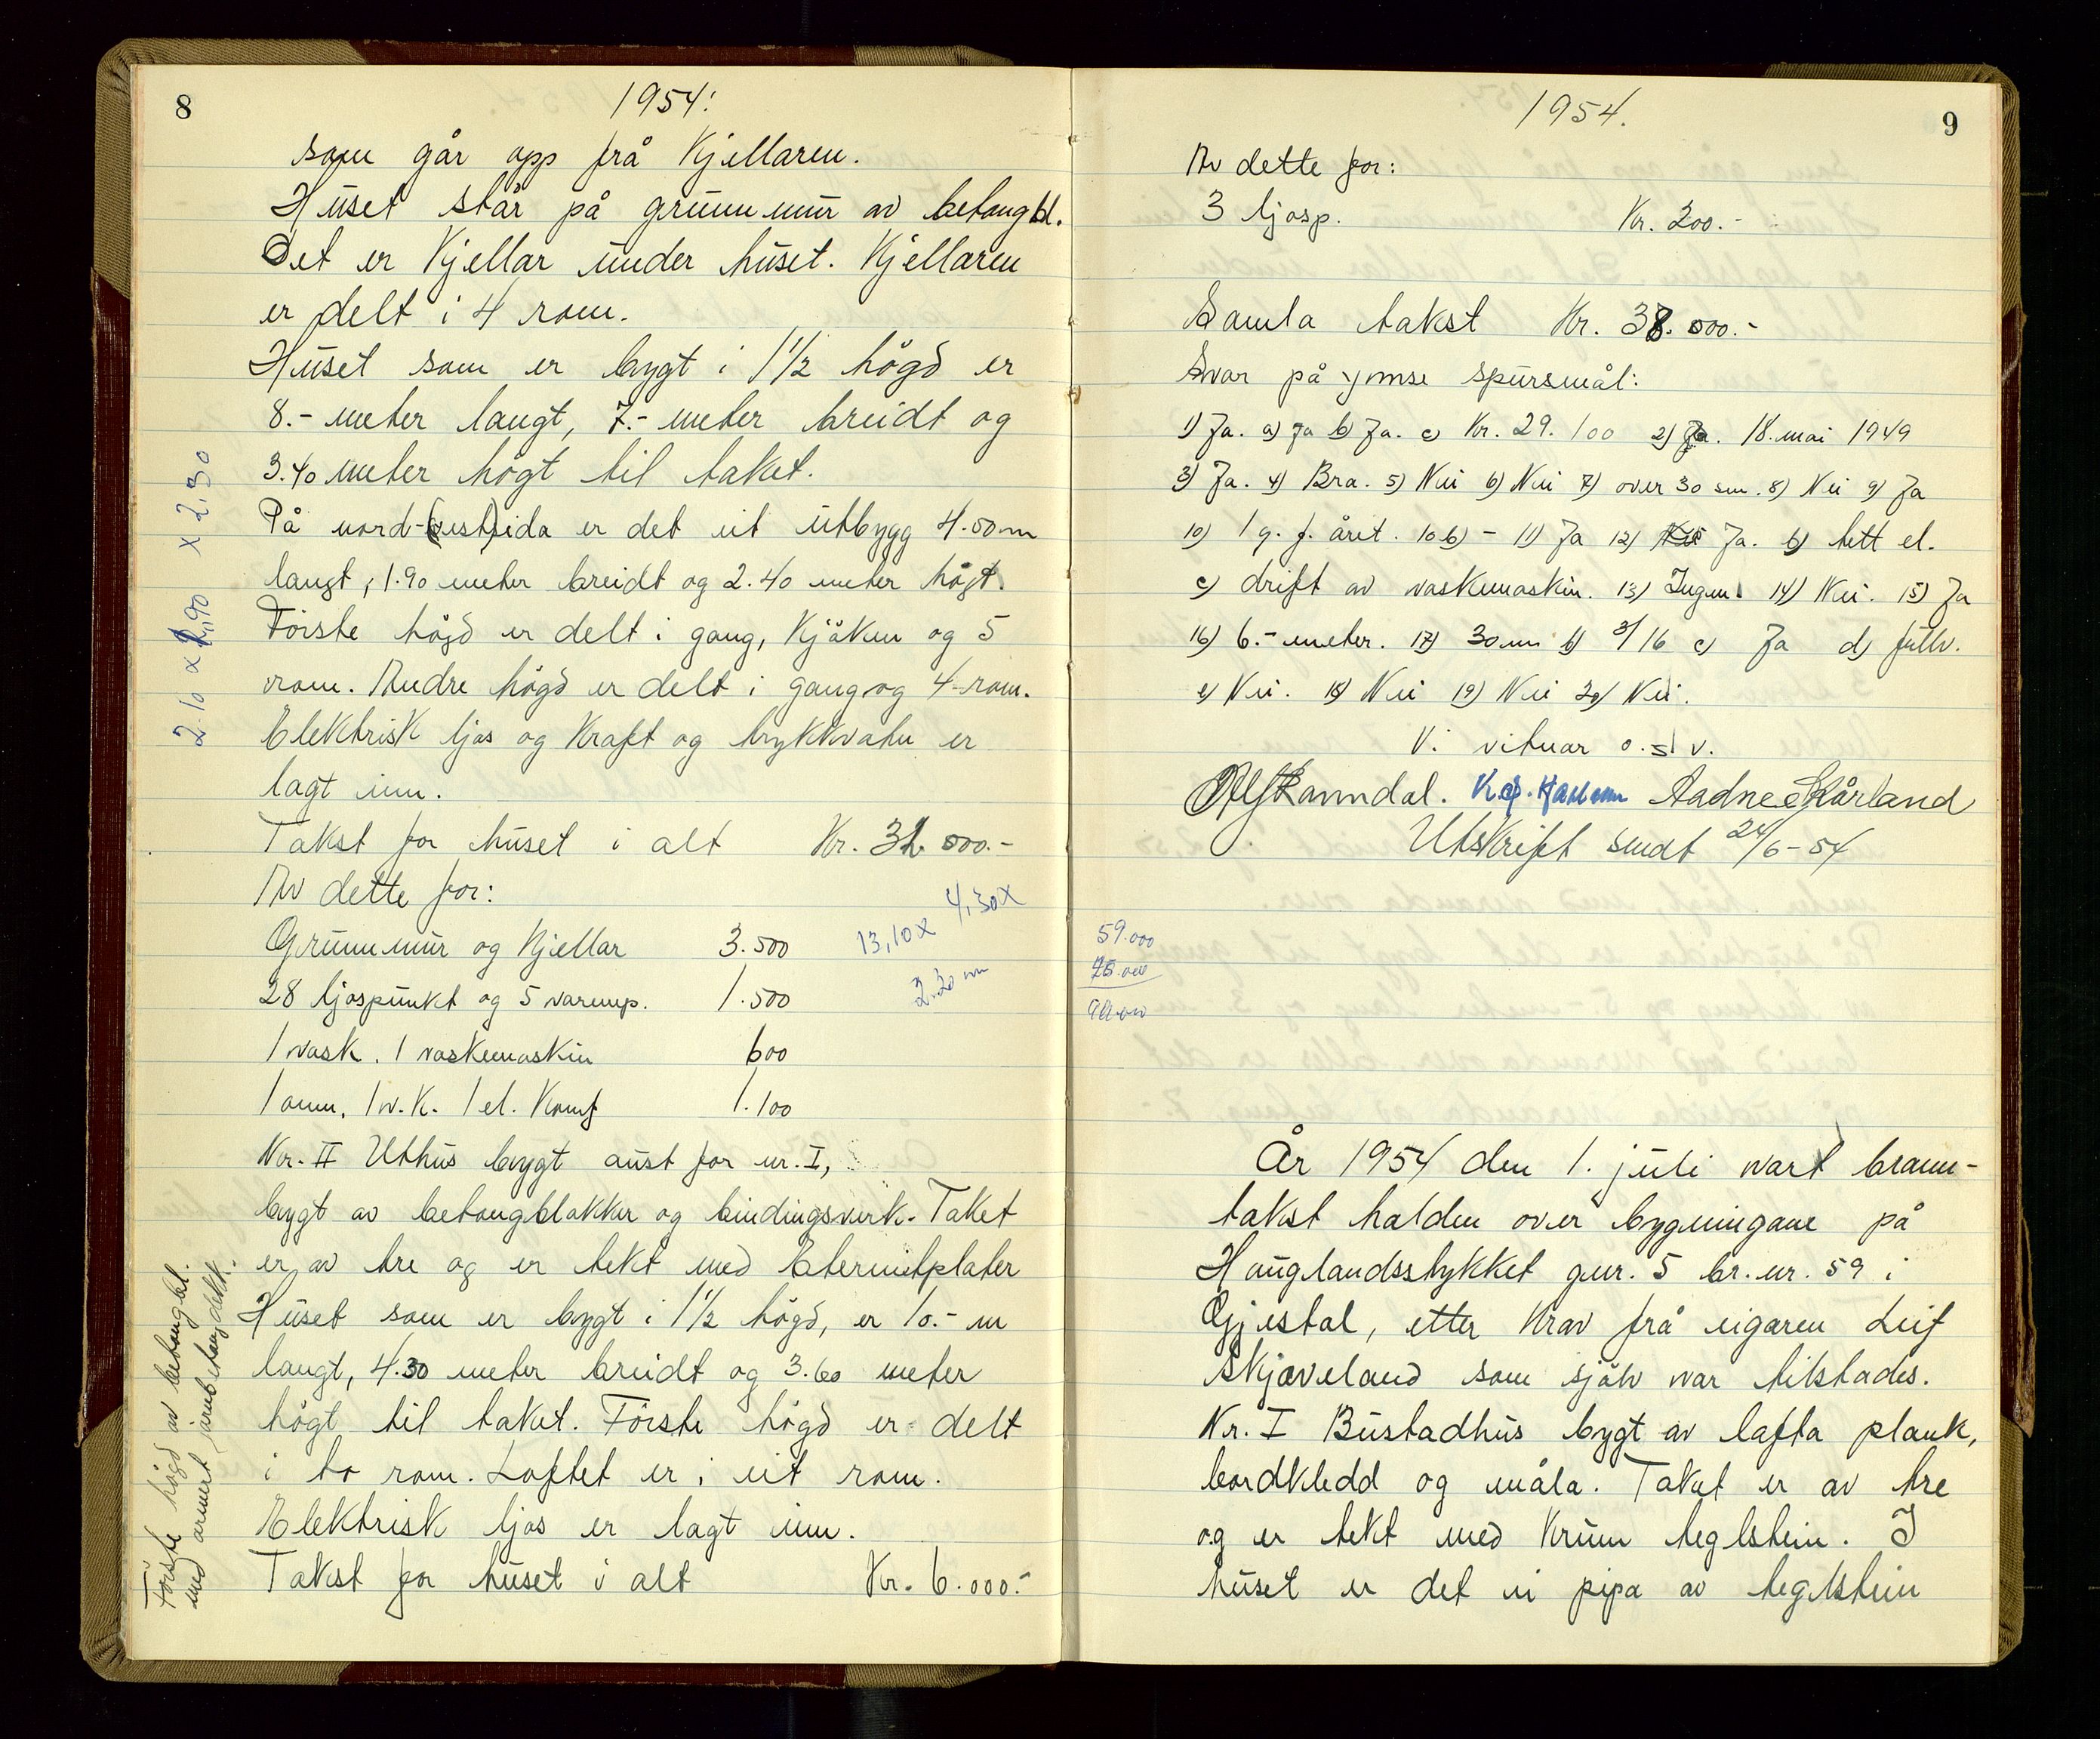 8
1954.
som går opp frå Kjellaren.
Huset står på grunnmur av betongbl.
Det er Kjellar under huset. Kjellaren
er delt i 4 rom.
Huset som er bygt i 1 1/2 högd er
8.- meter langt, 7.- meter breidt og
3.40 meter högt til taket.
På nord-(vest)sida er det eit utbygg 4.50 m
langt, 1.90 meter breidt og 2.40 meter högt.
Förste högd er delt i gang, Kjöken og 5
rom. Andre högd er delt i gang og 4 rom.
Elektrisk ljos og Kraft og trykkvatn er
lagt inn.
Takst for huset i alt Kr. 32.000.-
Av dette for:
Grunnmur og Kjellar 3.500
28 ljospunkt og 5 varmep. 1.500
1 vask. 1 vaskemaskin 600
1 omn. 1 v.K. 1 el. Komf 1.100
13,10 x 4,30 x
2.20 m
Nr. II Uthus bygt aust for nr. I,
bygt av betongblokker og bindingsverk. Taket
er av tre og er tekt med Eternitplater
Huset som er bygt i 1 1/2 högd, er 10.- m
langt, 4.30 meter breidt og 3.60 meter
högt til taket. Förste högd er delt
i to rom. Loftet er i eit rom.
Elektrisk ljos er lagt inn.
Takst for huset i alt Kr. 6.000.-
2.10 x 1,90 x 2,30
Förste högd av betongbl.
med armert jarnbetongdekk.
9
1954.
Av dette for:
3 ljosp. Kr. 200.-
Samla takst Kr. 38.000.-
Svar på ymse spursmål:
1) Ja. a) Ja b) Ja. c) Kr. 29.100 2) Ja. 18. mai 1949
3) Ja. 4) Bra. 5) Nei 6) Nei 7) over 30 sm. 8) Nei 9) Ja
10) 1 g. f. året. 10b) - 11) Ja 12) Nei Ja. b) tett el.
c) drift av vaskemaskin. 13) Ingen. 14) Nei. 15) Ja
16) 6.- meter. 17) 30 m b) 3/16 c) Ja d) fullv.
e) Nei. 18) Nei 19) Nei 20) Nei.
Vi vitnar o.s.v.
Aadne Skårland
Utskrift sendt 24/6-54
59.000
75.000
År 1954 den 1. juli vart brann-
takst halden over bygningane på
Hauglandsstykket gnr. 5 br. nr. 59 i
Gjestal, etter Krav frå eigaren Leif
Skjæveland som sjölv var tilstades.
Nr. I Bustadhus bygt av lafta plank,
bordkledd og måla. Taket er av tre
og er tekt med Krum teglstein. I
huset er det ei pipa av teglstein